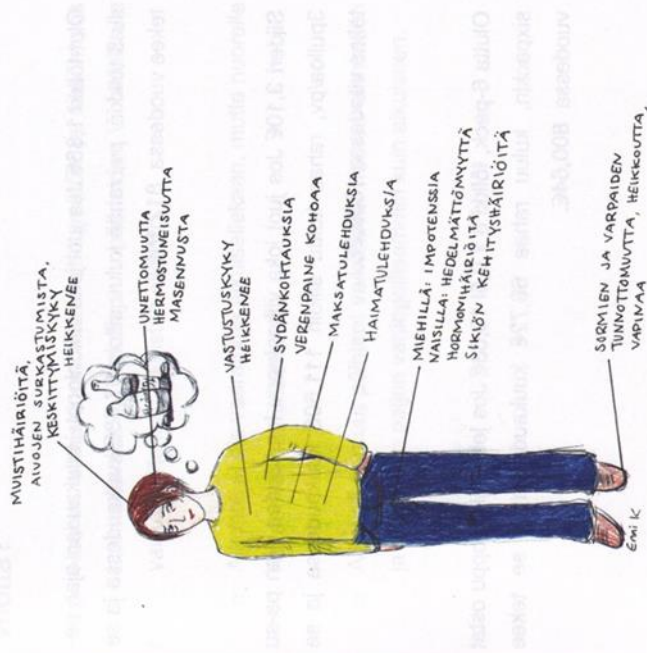 MUISTIHÄIRIÖITÄ,
AIVOJEN SURKASTUMISTA,
KESKITTYMISKYKY
HEIKKENEE
UNETTOMUUTTA
HERMOSTUNEISUUTTA
MASENNUSTA
VASTUSTUSKYKY
HEIKKENEE
SYDÄNKOHTAUKSIA
VERENPAINE KOHOAA
MAKSATULEHDUKSIA
HAIMATULEHDUKSIA
MIEHILLÄ: IMPOTENSSIA
NAISILLA: HEDELMÄTTÖMYYTTÄ
HORMONIHÄIRIÖITÄ
SIKIÖN KEHITYSHÄIRIÖITÄ
SORMIEN JA VARPAIDEN
TUNNOTTOMUUTTA, HEIKKOUTTA,
VAPINAA
Emi K